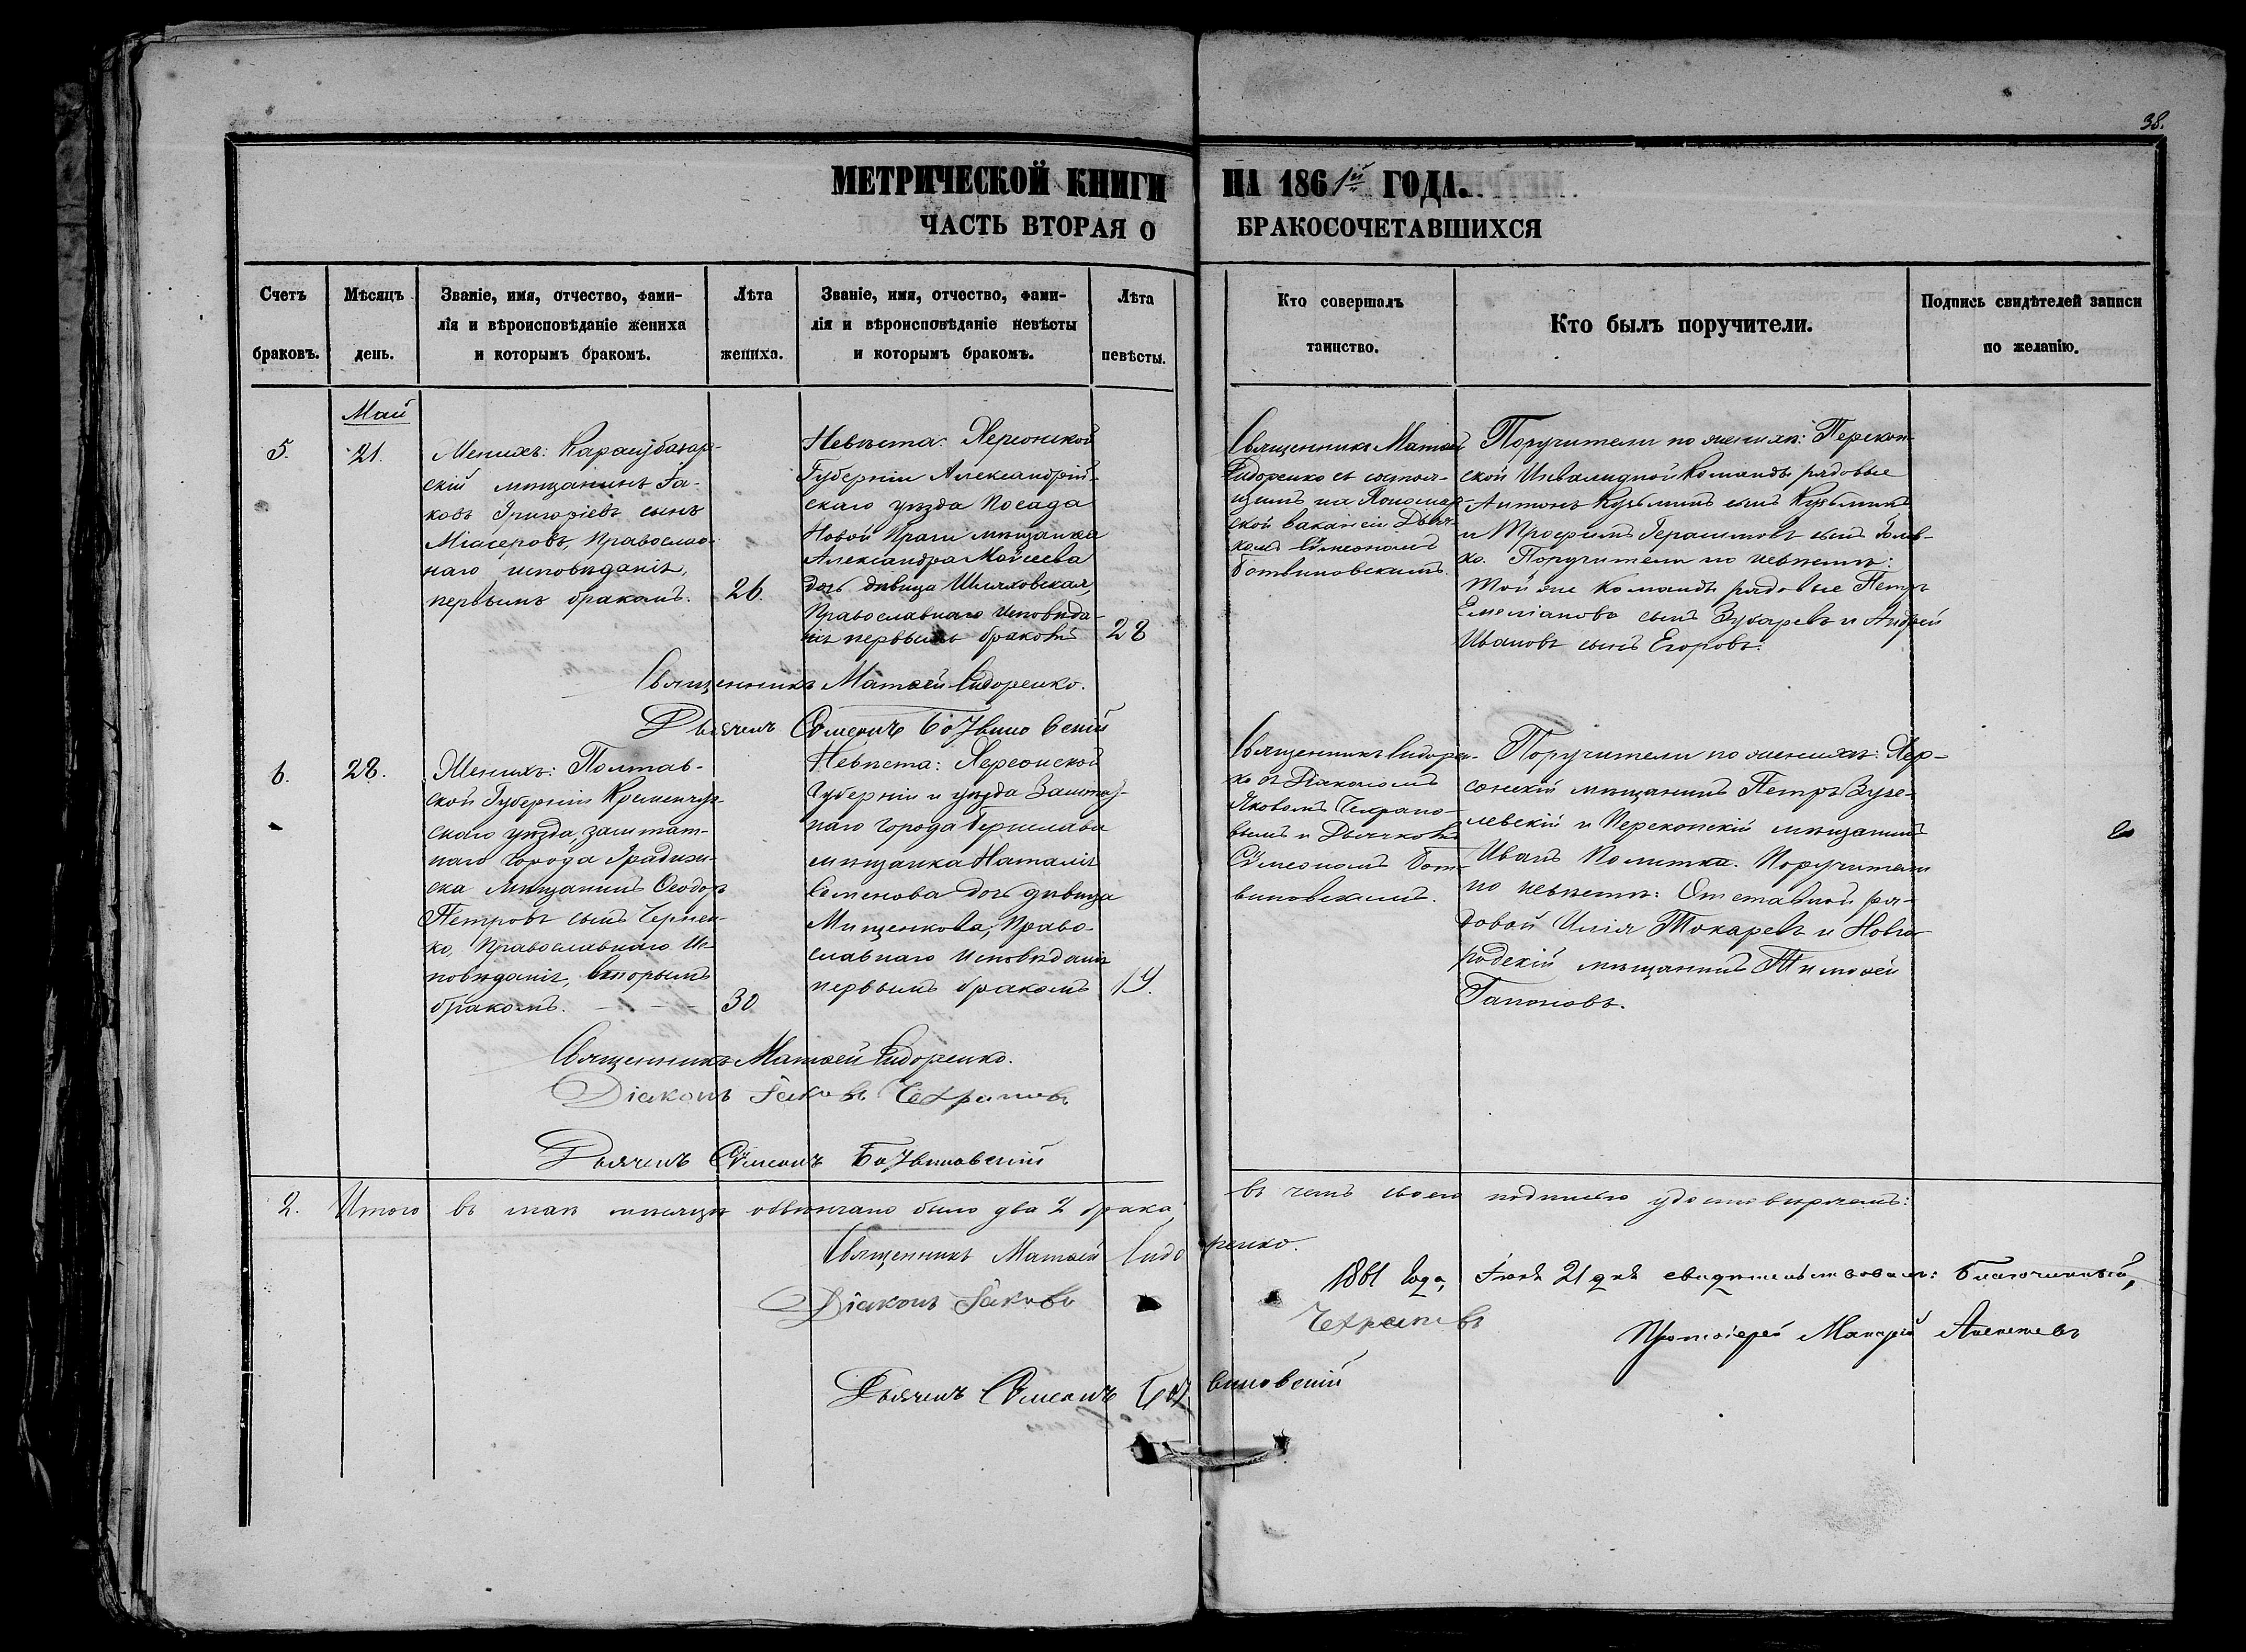 38.
МЕТРИЧЕСКОЙ КНИГИ НА 1861й ГОДА.
ЧАСТЬ ВТОРАЯ О БРАКОСОЧЕТАВШИХСЯ
Счетъ браковъ.
Мѣсяцъ день.
Званіе, имя, отчество, фами-
лія и вѣроисповѣданіе жениха
и которымъ бракомъ.
Лѣта жениха.
Званіе, имя, отчество, фами-
лія и вѣроисповѣданіе невѣсты
и которымъ бракомъ.
Лѣта невѣсты.
Кто совершалъ
таинство.
Кто былъ поручители.
Подпись свидѣтелей записи
по желанію.
Май
5.
21.
Женихъ: Карасубазар-
скій мѣщанинъ Іа-
ковъ Григоріевъ сынъ
Православ-
наго исповѣданія,
первымъ бракомъ.
26.
Невѣста: Херсонской
Губерніи Александрій-
скаго уѣзда Посада
Новой Праги мѣщанка
Александра Моисеева
дочь дѣвица Шляховская,
Православнаго исповѣда-
нія первымъ бракомъ
28
Священникъ Матѳей
Сидоренко съ состоя-
щимъ на Пономар-
ской вакансіи Дьяч-
комъ Сѵмеономъ
Ботвиновскимъ.
Поручители по женихѣ: Перекоп-
ской Инвалидной Команды рядовые
Антонъ Кузьминъ сынъ Кузьминъ
и Трофимъ Герасимовъ сынъ
ко. Поручители по невѣстѣ:
той же команды рядовые Петръ
Емеліановъ сынъ Зубаревъ и Андрей
Ивановъ сынъ Егоровъ.
Священникъ Матѳей Сидоренко.
Дьячекъ Сѵмеонъ Ботвиновскій
6.
28.
Женихъ: Полтав-
ской Губерніи Кременчуг-
скаго уѣзда, заштат-
наго города Градиж-
ска мѣщанинъ Ѳеодоръ
Петровъ сынъ Чернен-
ко, Православнаго Ис-
повѣданія, вторымъ
бракомъ.
30
Невѣста: Херсонской
Губерніи и уѣзда Заштат-
наго города Берислава
мѣщанка Наталія
Семенова дочь дѣвица
Мищенкова, Право-
славнаго исповѣданія
первымъ бракомъ
19.
Священникъ Сидорен-
ко съ Діакономъ
Іаковомъ Чехрано-
вымъ и Дьячкомъ
Сѵмеономъ Бот-
виновскимъ.
Поручители по женихѣ: Хер-
сонскій мѣщанинъ Петръ
левскій и Перекопскій мѣщанинъ
Иванъ Политка. Поручители
по невѣстѣ: Отставной ря-
довой Илія Токаревъ и Новго-
родскій мѣщанинъ Тимоѳей
Гапоновъ.
Священникъ Матѳей Сидоренко.
Діаконъ Іаковъ Чехрановъ
Дьячекъ Сѵмеонъ Ботвиновскій
2. Итого въ маѣ мѣсяцѣ обвѣнчано было два 2 брака, въ чемъ своею подписью удостовѣряемъ:
Священникъ Матѳей Сидоренко.
1861 года, Іюня 21 дня свидѣтельствовалъ: Благочинный,
Діаконъ Іаковъ Чехрановъ
Протоіерей
Дьячекъ Сѵмеонъ Ботвиновскій